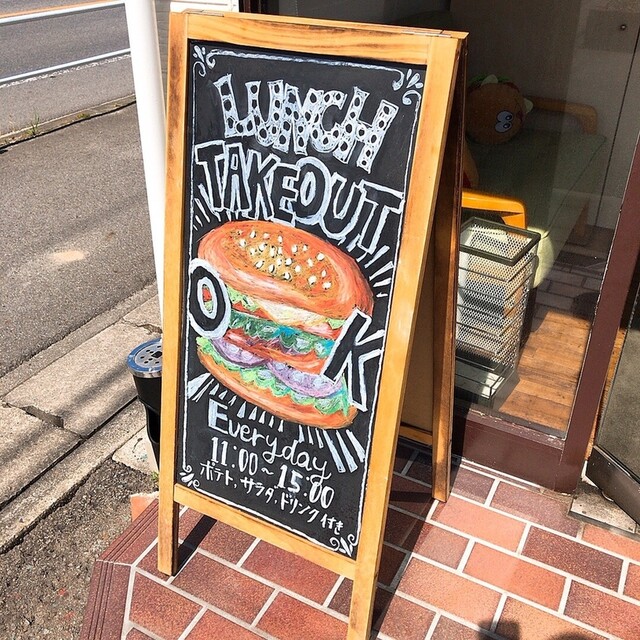 LUNCH
TAKEOUT
OK
Everyday
11:00~15:00
ポテト、サラダ、ドリンク付き